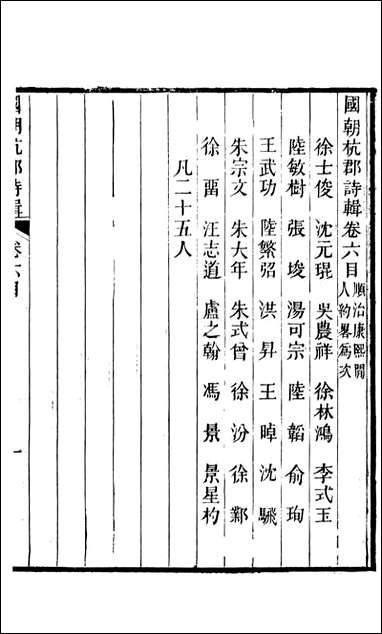 國朝杭郡詩輯卷六目 順治康熙間人約畧爲次
徐士俊 沈元琨 吳農祥 徐林鴻 李式玉
陸敏樹 張埈 湯可宗 陸韜 俞珣
王武功 陸繁弨 洪昇 王晫 沈駿
朱宗文 朱大年 朱式曾 徐汾 徐鄴
徐靁 汪志道 盧之翰 馮景 景星杓
凡二十五人
國朝杭郡詩輯 卷六目 一